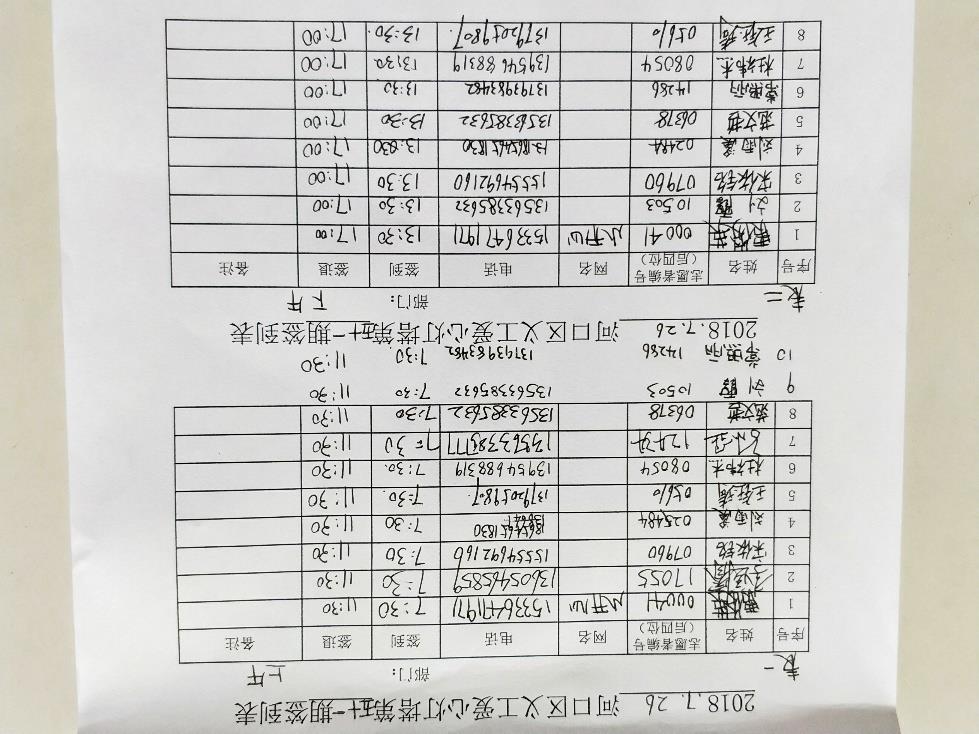 2018.7.26 河口区义工爱心灯塔第五十一期签到表
表一 部门： 上午
序号 姓名 志愿者编号（后四位） 网名 电话 签到 签退 备注
1 00041 小开心 15336471971 7:30 11:30
2 17055 13605465859 7:30 11:30
3 宋俊铭 07960 15554692160 7:30 11:30
4 刘雨濛 025484 7:30 11:30
5 05610 13792059807. 7:30. 11:30
6 杜林杰 08054 13954688319 7:30. 11:30
7 7:30 11:30
8 范文哲 06378 13563385632 7:30 11:30
9 刘霞 10503 13563385632 7:30 11:30
10 常丽 14286 13793983462 7:30. 11:30
2018.7.26 河口区义工爱心灯塔第五十一期签到表
表二 部门： 下午
序号 姓名 志愿者编号（后四位） 网名 电话 签到 签退 备注
1 00041 小开心 15336471971 13:30 17:00
2 刘霞 10503 13563385632 13:30 17:00
3 宋俊铭 07960 15554692160 13:30 17:00
4 刘雨濛 02484 17:00
5 范文哲 06378 13563385632 13:30 17:00
6 14286 13793983462 13:30 17:00
7 杜林杰 08054 13954688319 13:30 17:00
8 05610 13792059807. 13:30. 17:00